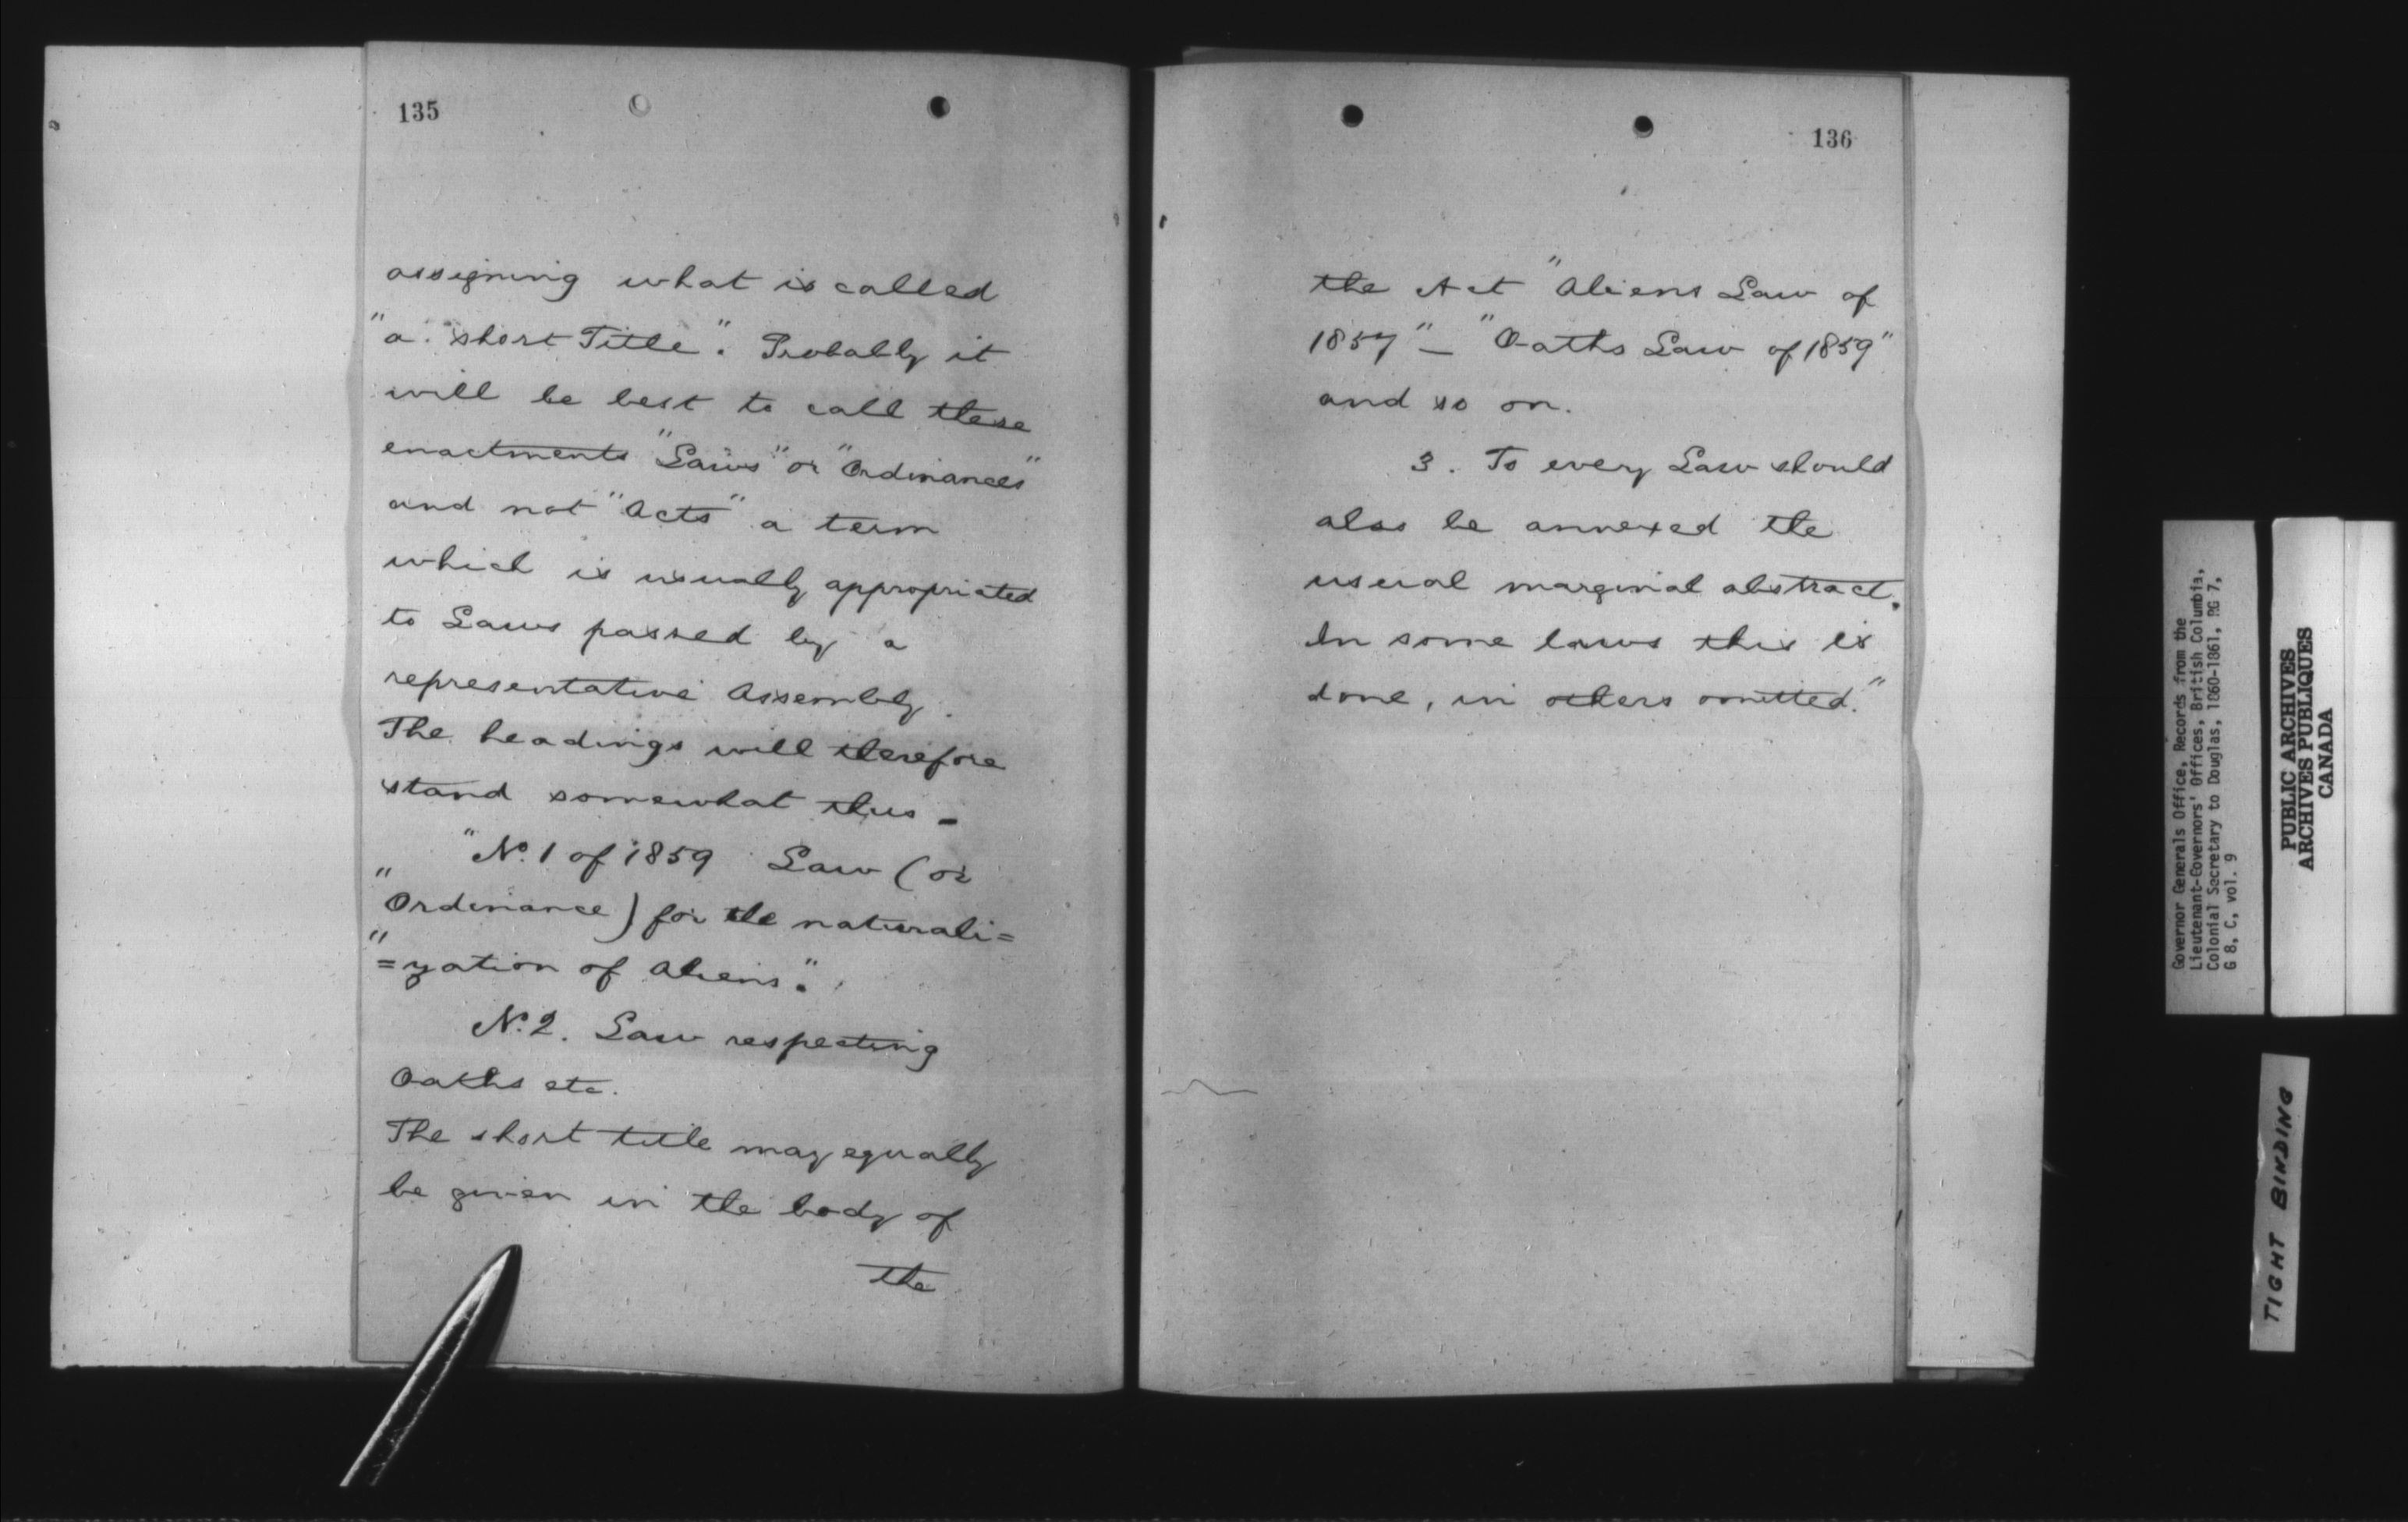 135
assigning what is called
"a short Title". Probably it
will be best to call these
enactments "Laws" or "Ordinances"
and not "Acts" a term
which is usually appropriated
to Laws passed by a
representative Assembly.
The headings will therefore
stand somewhat thus –
"No. 1 of 1859 Law (or
"Ordinance) for the naturali=
"=zation of Aliens".
No. 2. Law respecting
Oaths etc.
The short title may equally
be given in the body of
the
136
the Act "Aliens Law of
1857" – "Oaths Law of 1859"
and so on.
3. To every Law should
also be annexed the
usual marginal abstract.
In some laws this is
done, in others omitted."
Governor Generals Office, Records from the
Lieutenant-Governors' Offices, British Columbia,
Colonial Secretary to Douglas, 1860-1861, RG 7,
G 8, C, vol. 9
PUBLIC ARCHIVES
ARCHIVES PUBLIQUES
CANADA
TIGHT BINDING